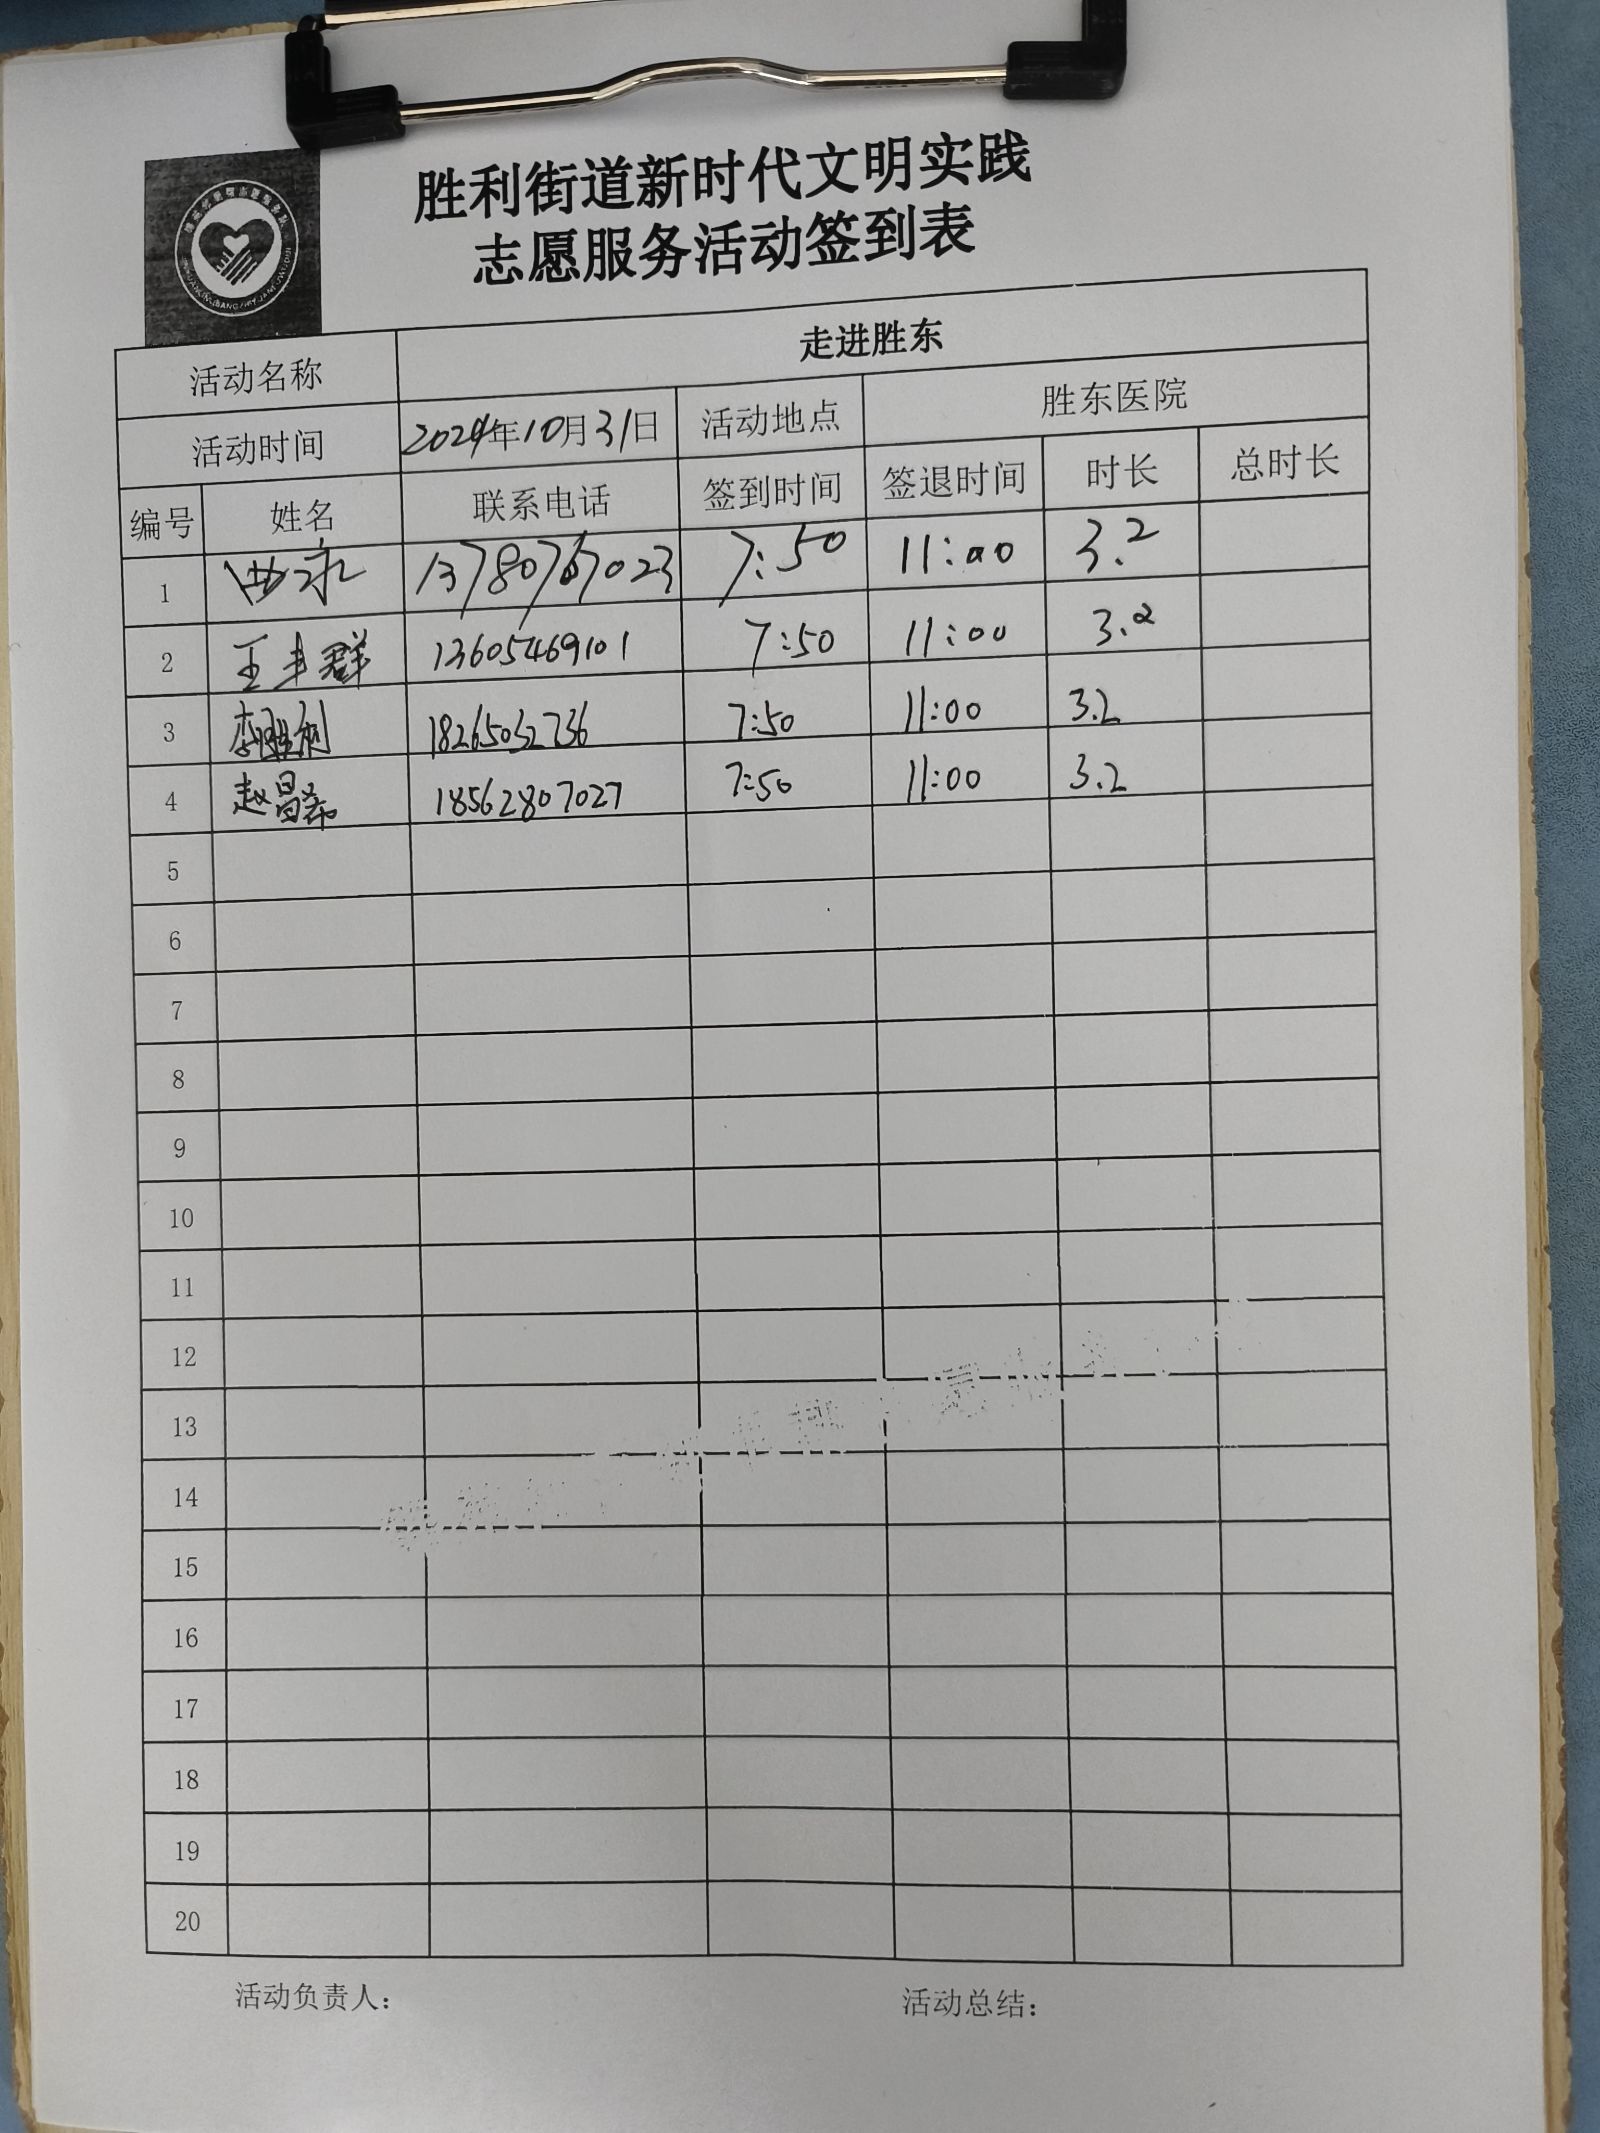 胜利街道新时代文明实践
志愿服务活动签到表
活动名称 走进胜东
活动时间 2024年10月31日 活动地点 胜东医院
编号 姓名 联系电话 签到时间 签退时间 时长 总时长
1 13780767023 7:50 11:00 3.2
2 王丰群 13605469101 7:50 11:00 3.2
3 李胜利 18265032736 7:50 11:00 3.2
4 赵昌 18562807027 7:50 11:00 3.2
5
6
7
8
9
10
11
12
13
14
15
16
17
18
19
20
活动负责人: 活动总结: